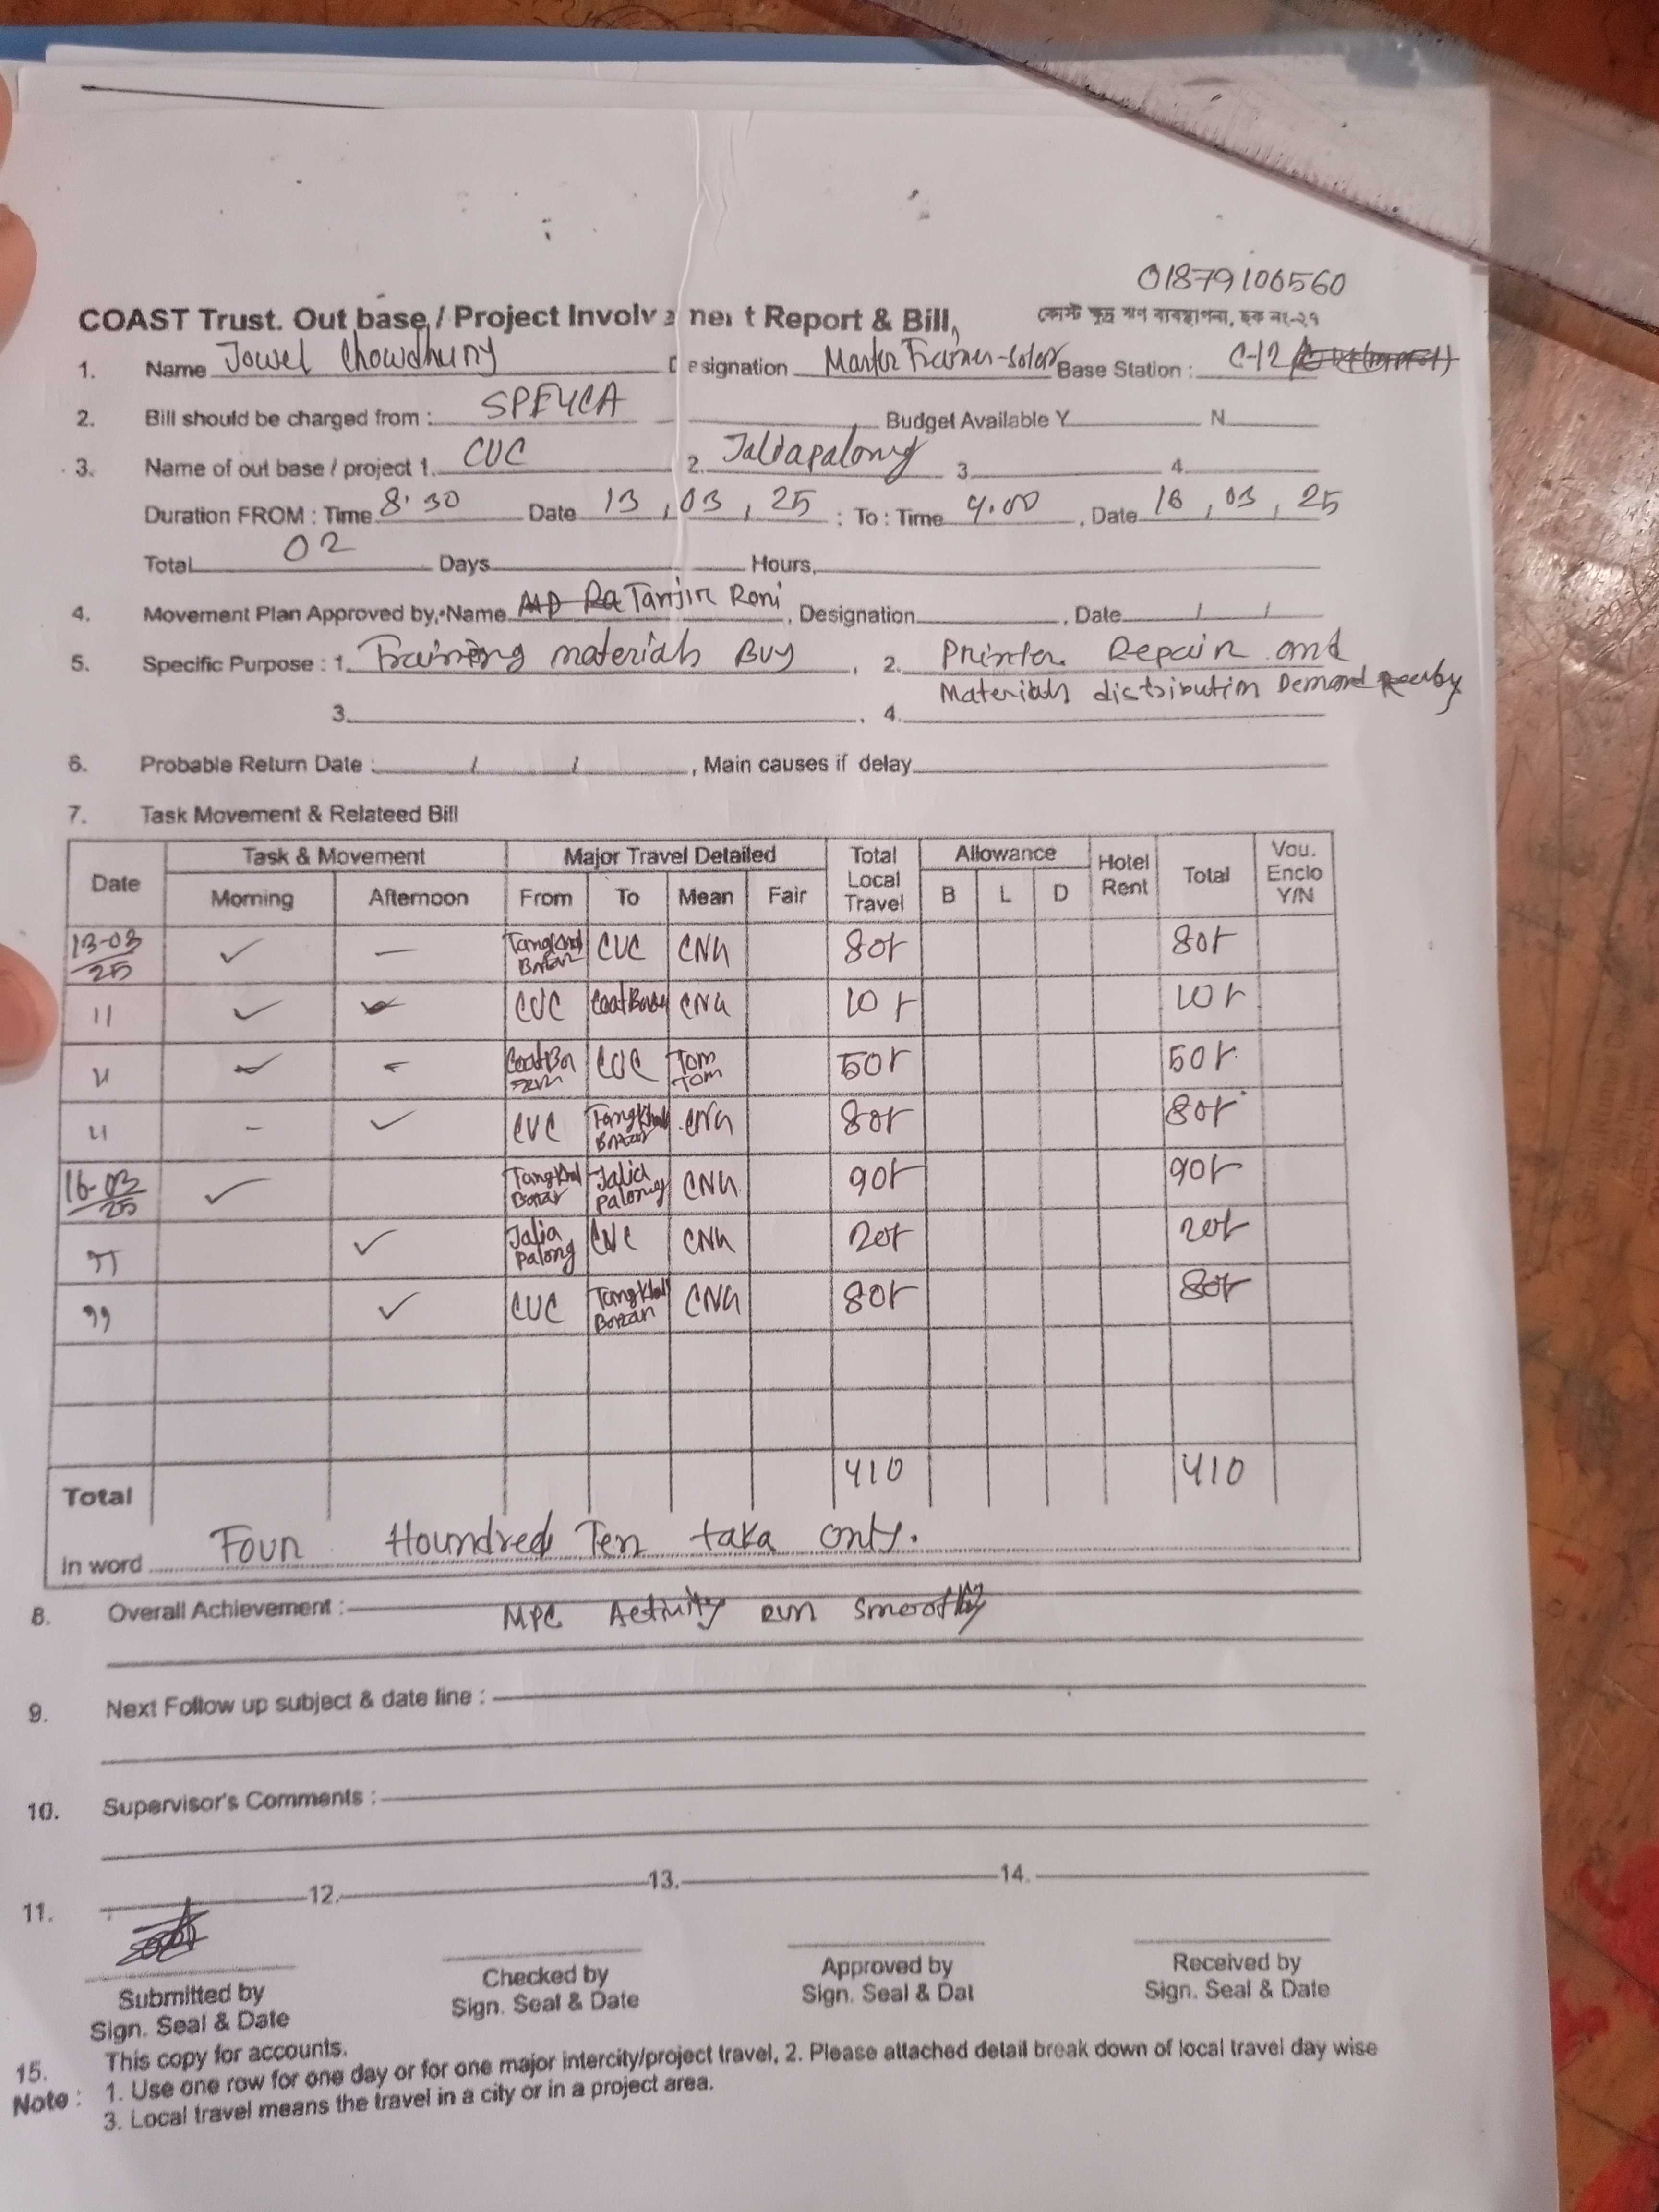 01879106560
COAST Trust. Out base / Project Involvement Report & Bill, কোস্ট ক্ষুদ্র ঋণ ব্যবস্থাপনা, ছক নং-২৭
1. Name Jowel Chowdhury Designation Master Trainer-Solar Base Station : C-12
2. Bill should be charged from : SPEYCA Budget Available Y N
3. Name of out base / project 1. CUC 2. Jaliapalong 3 4
Duration FROM : Time 8:30 Date 13, 03, 25 : To : Time 4.00, Date 16, 03, 25
Total 02 Days Hours,
4. Movement Plan Approved by, Name Tanjir Roni, Designation , Date / /
5. Specific Purpose : 1. Training materials Buy , 2. Printer Repair and
Materials distribution Demand
3. , 4.
6. Probable Return Date : / / , Main causes if delay
7. Task Movement & Relateed Bill
Date Task & Movement Major Travel Detailed Total Local Travel Allowance Hotel Rent Total Vou. Enclo Y/N
Morning Afternoon From To Mean Fair B L D
13-03/25 ✓ – Tangkhali Bazar CUC CNG 80৳ 80৳
11 ✓ CUC CoatBazar CNG 10৳ 10৳
11 CoatBazar CUC Tom Tom 50৳ 50৳
11 - ✓ CUC Tangkhali Bazar CNG 80৳ 80৳
16-03/25 ✓ Tangkhali Bazar Jalia Palong CNG 90৳ 90৳
" ✓ Jalia Palong CUC CNG 20৳ 20৳
" ✓ CUC Tangkhali Bazar CNG 80৳ 80৳
Total 410 410
In word Four Houndred Ten taka only.
8. Overall Achievement : MPC Activity Run smoothly
9. Next Follow up subject & date line :
10. Supervisor's Comments :
11. 12. 13. 14.
Submitted by Checked by Approved by Received by
Sign. Seal & Date Sign. Seal & Date Sign. Seal & Dat Sign. Seal & Date
15. This copy for accounts.
Note : 1. Use one row for one day or for one major intercity/project travel, 2. Please attached detail break down of local travel day wise
3. Local travel means the travel in a city or in a project area.